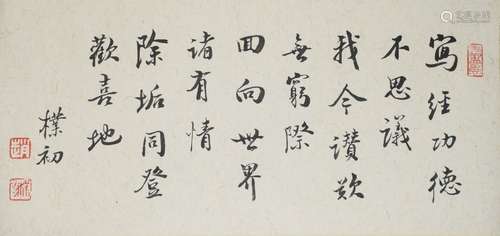 寫經功德
不思議
我今讚歎
無窮際
回向世界
諸有情
除垢同登
歡喜地
樸初